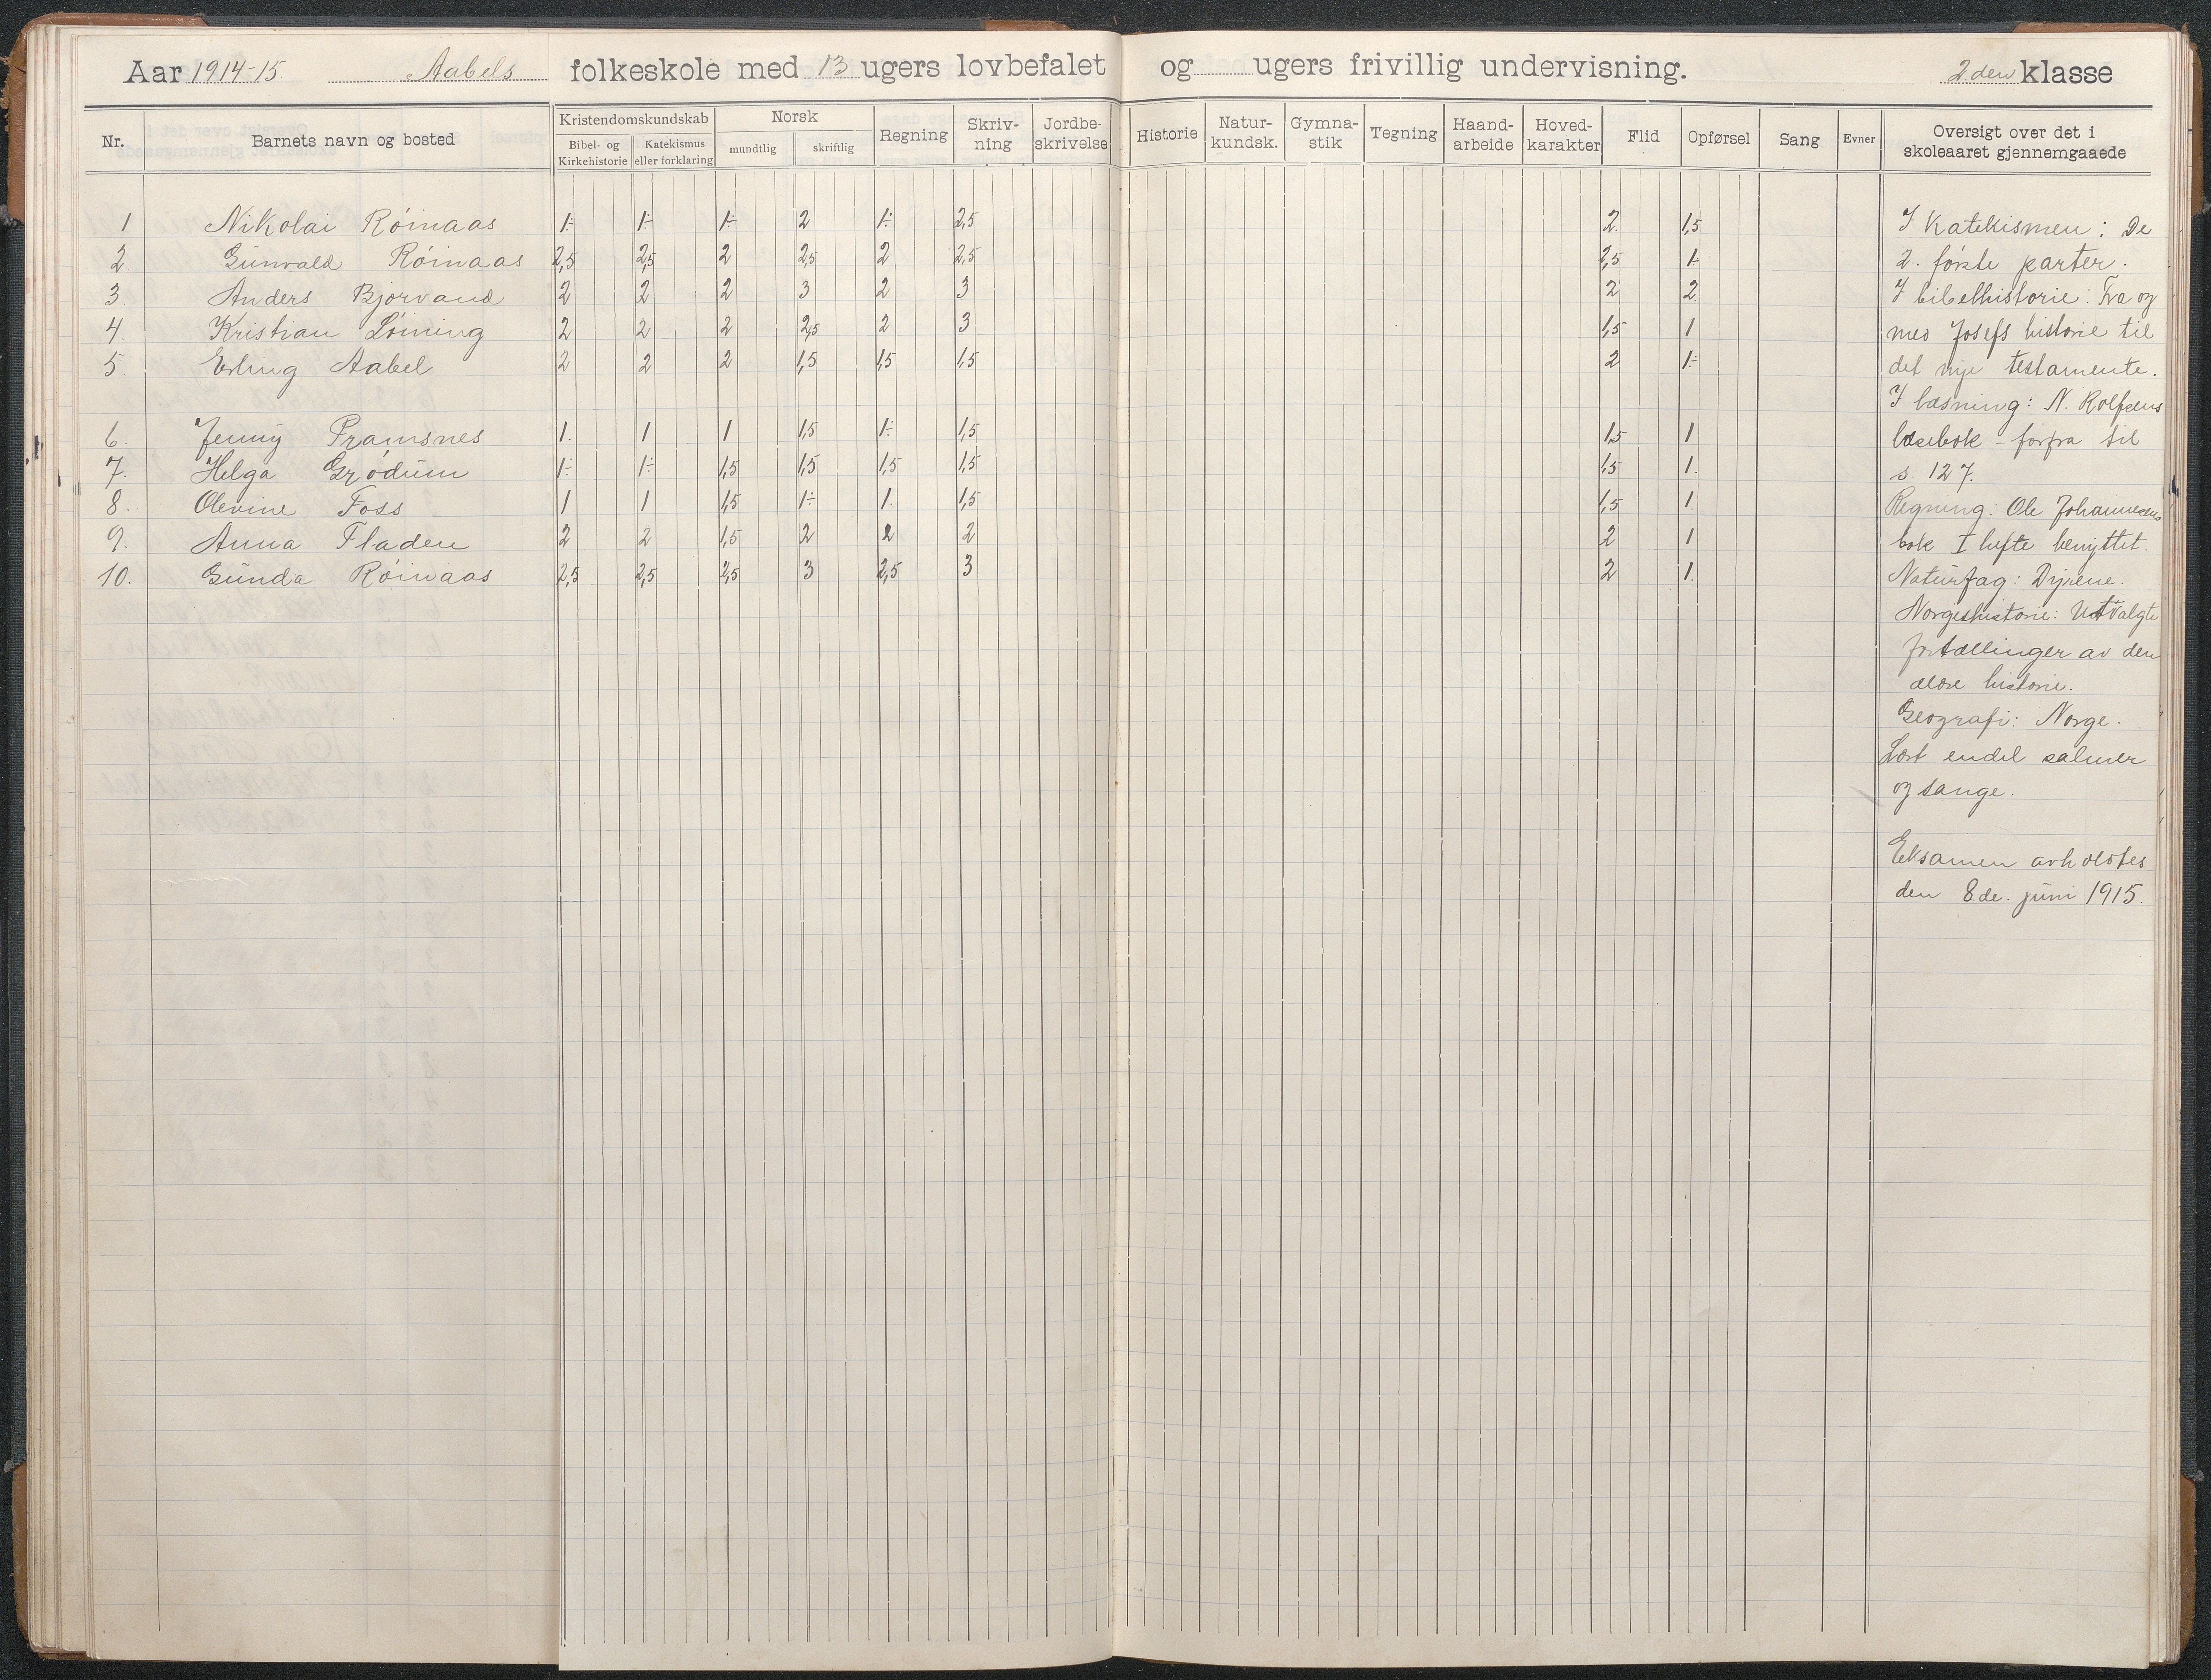 Aar 1914-15. Aabels folkeskole med 13 ugers lovbefalet og ugers frivillig undervisning. 2.den klasse
Nr. Barnets navn og bosted Kristendomskundskab Bibel- og Kirkehistorie Katekismus eller forklaring Norsk mundtlig skriftlig Regning Skriv-ning Jordbe-skrivelse Historie Natur-kundsk. Gymna-stik Tegning Haand-arbeide Hoved-karakter Flid Opførsel Sang Evner Oversigt over det i skoleaaret gjennemgaaede
1 Nikolai Röinaas 1÷ 1÷ 1÷ 2 1÷ 2,5 2. 1,5
2. Gunvald Röinaas 2,5 2,5 2 2,5 2 2,5 2,5 1÷
3. Anders Bjorvand 2 2 2 3 2 3 2 2
4. Kristian Löining 2 2 2 2,5 2 3 1,5 1
5. Erling Aabel 2 2 2 1,5 1,5 1,5 2 1÷
6. Jenny Pramsnes 1. 1 1 1,5 1÷ 1,5 1,5 1
7. Helga Grödum 1÷ 1÷ 1,5 1,5 1,5 1,5 1,5 1.
8. Olevine Foss 1 1 1,5 1÷ 1. 1,5 1,5 1
9. Anna Fladen 2 2 1,5 2 2 2 2 1
10. Gunda Röinaas 2,5 2,5 2,5 3 2,5 3 2 1.
I Katekismen: De
2. förste parter.
I bibelhistorie: Fra og
med Josefs historie til
det nye testamente.
I læsning: N. Rolfsens
læsebok – forfra til
s. 127.
Regning: Ole Johannesens
bok I hefte benyttet.
Naturfag: Dyrene.
Norgeshistorie: Utvalgte
fortællinger av den
ældre historie.
Geografi: Norge.
Lært endel salmer
og sange.
Eksamen avholdtes
den 8de. juni 1915.